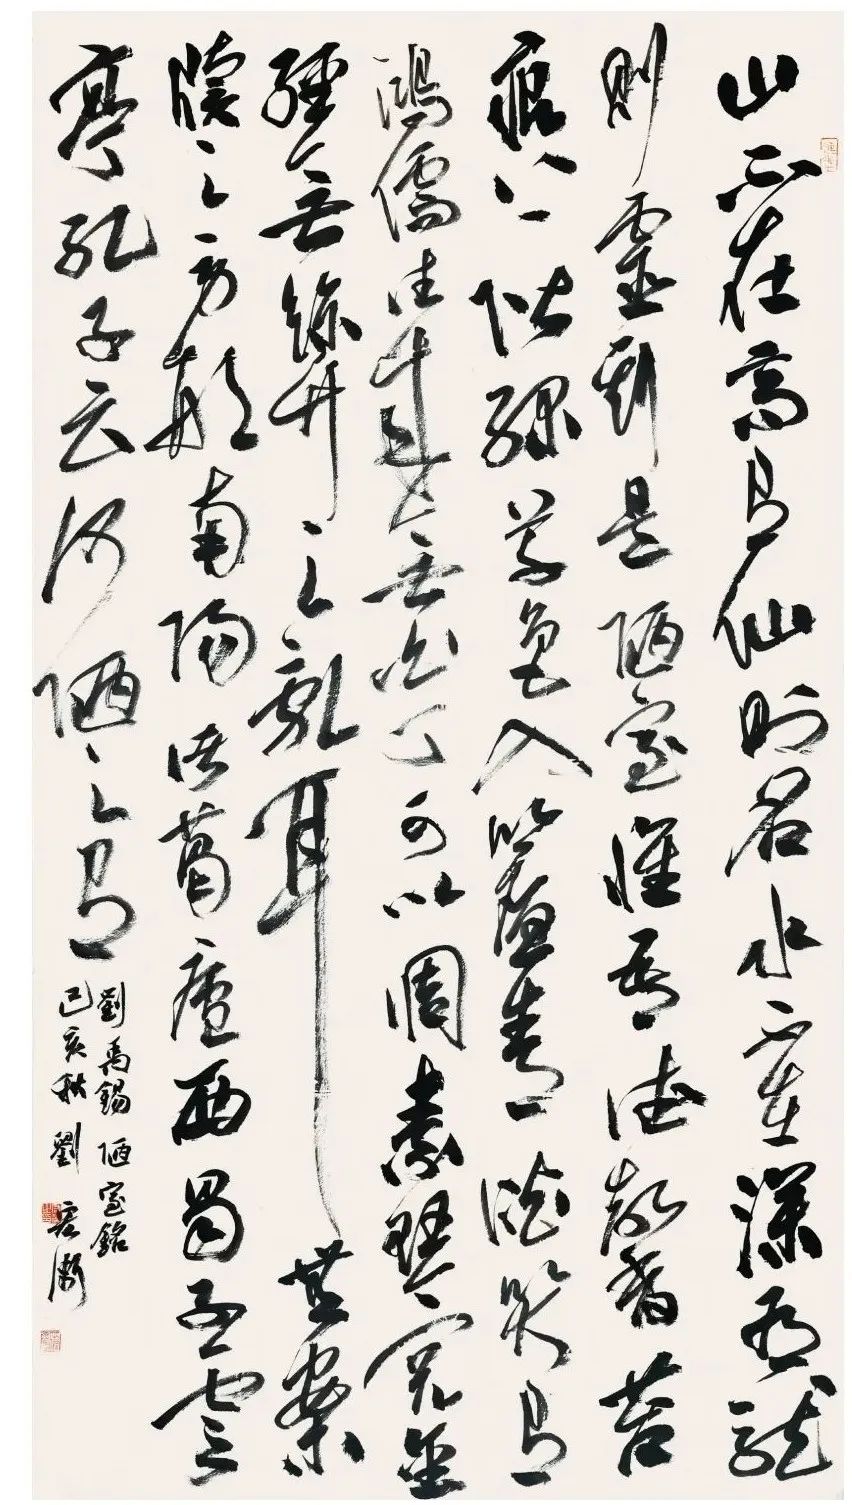 山不在高有仙則名水不在深有龍
則靈斯是陋室惟吾德馨苔
痕上階綠草色入簾青談笑有
鴻儒往來無白丁可以調素琴閱金
經無絲竹之亂耳無案
牘之勞形南陽諸葛廬西蜀子雲
亭孔子云何陋之有
劉禹錫陋室銘
己亥秋劉